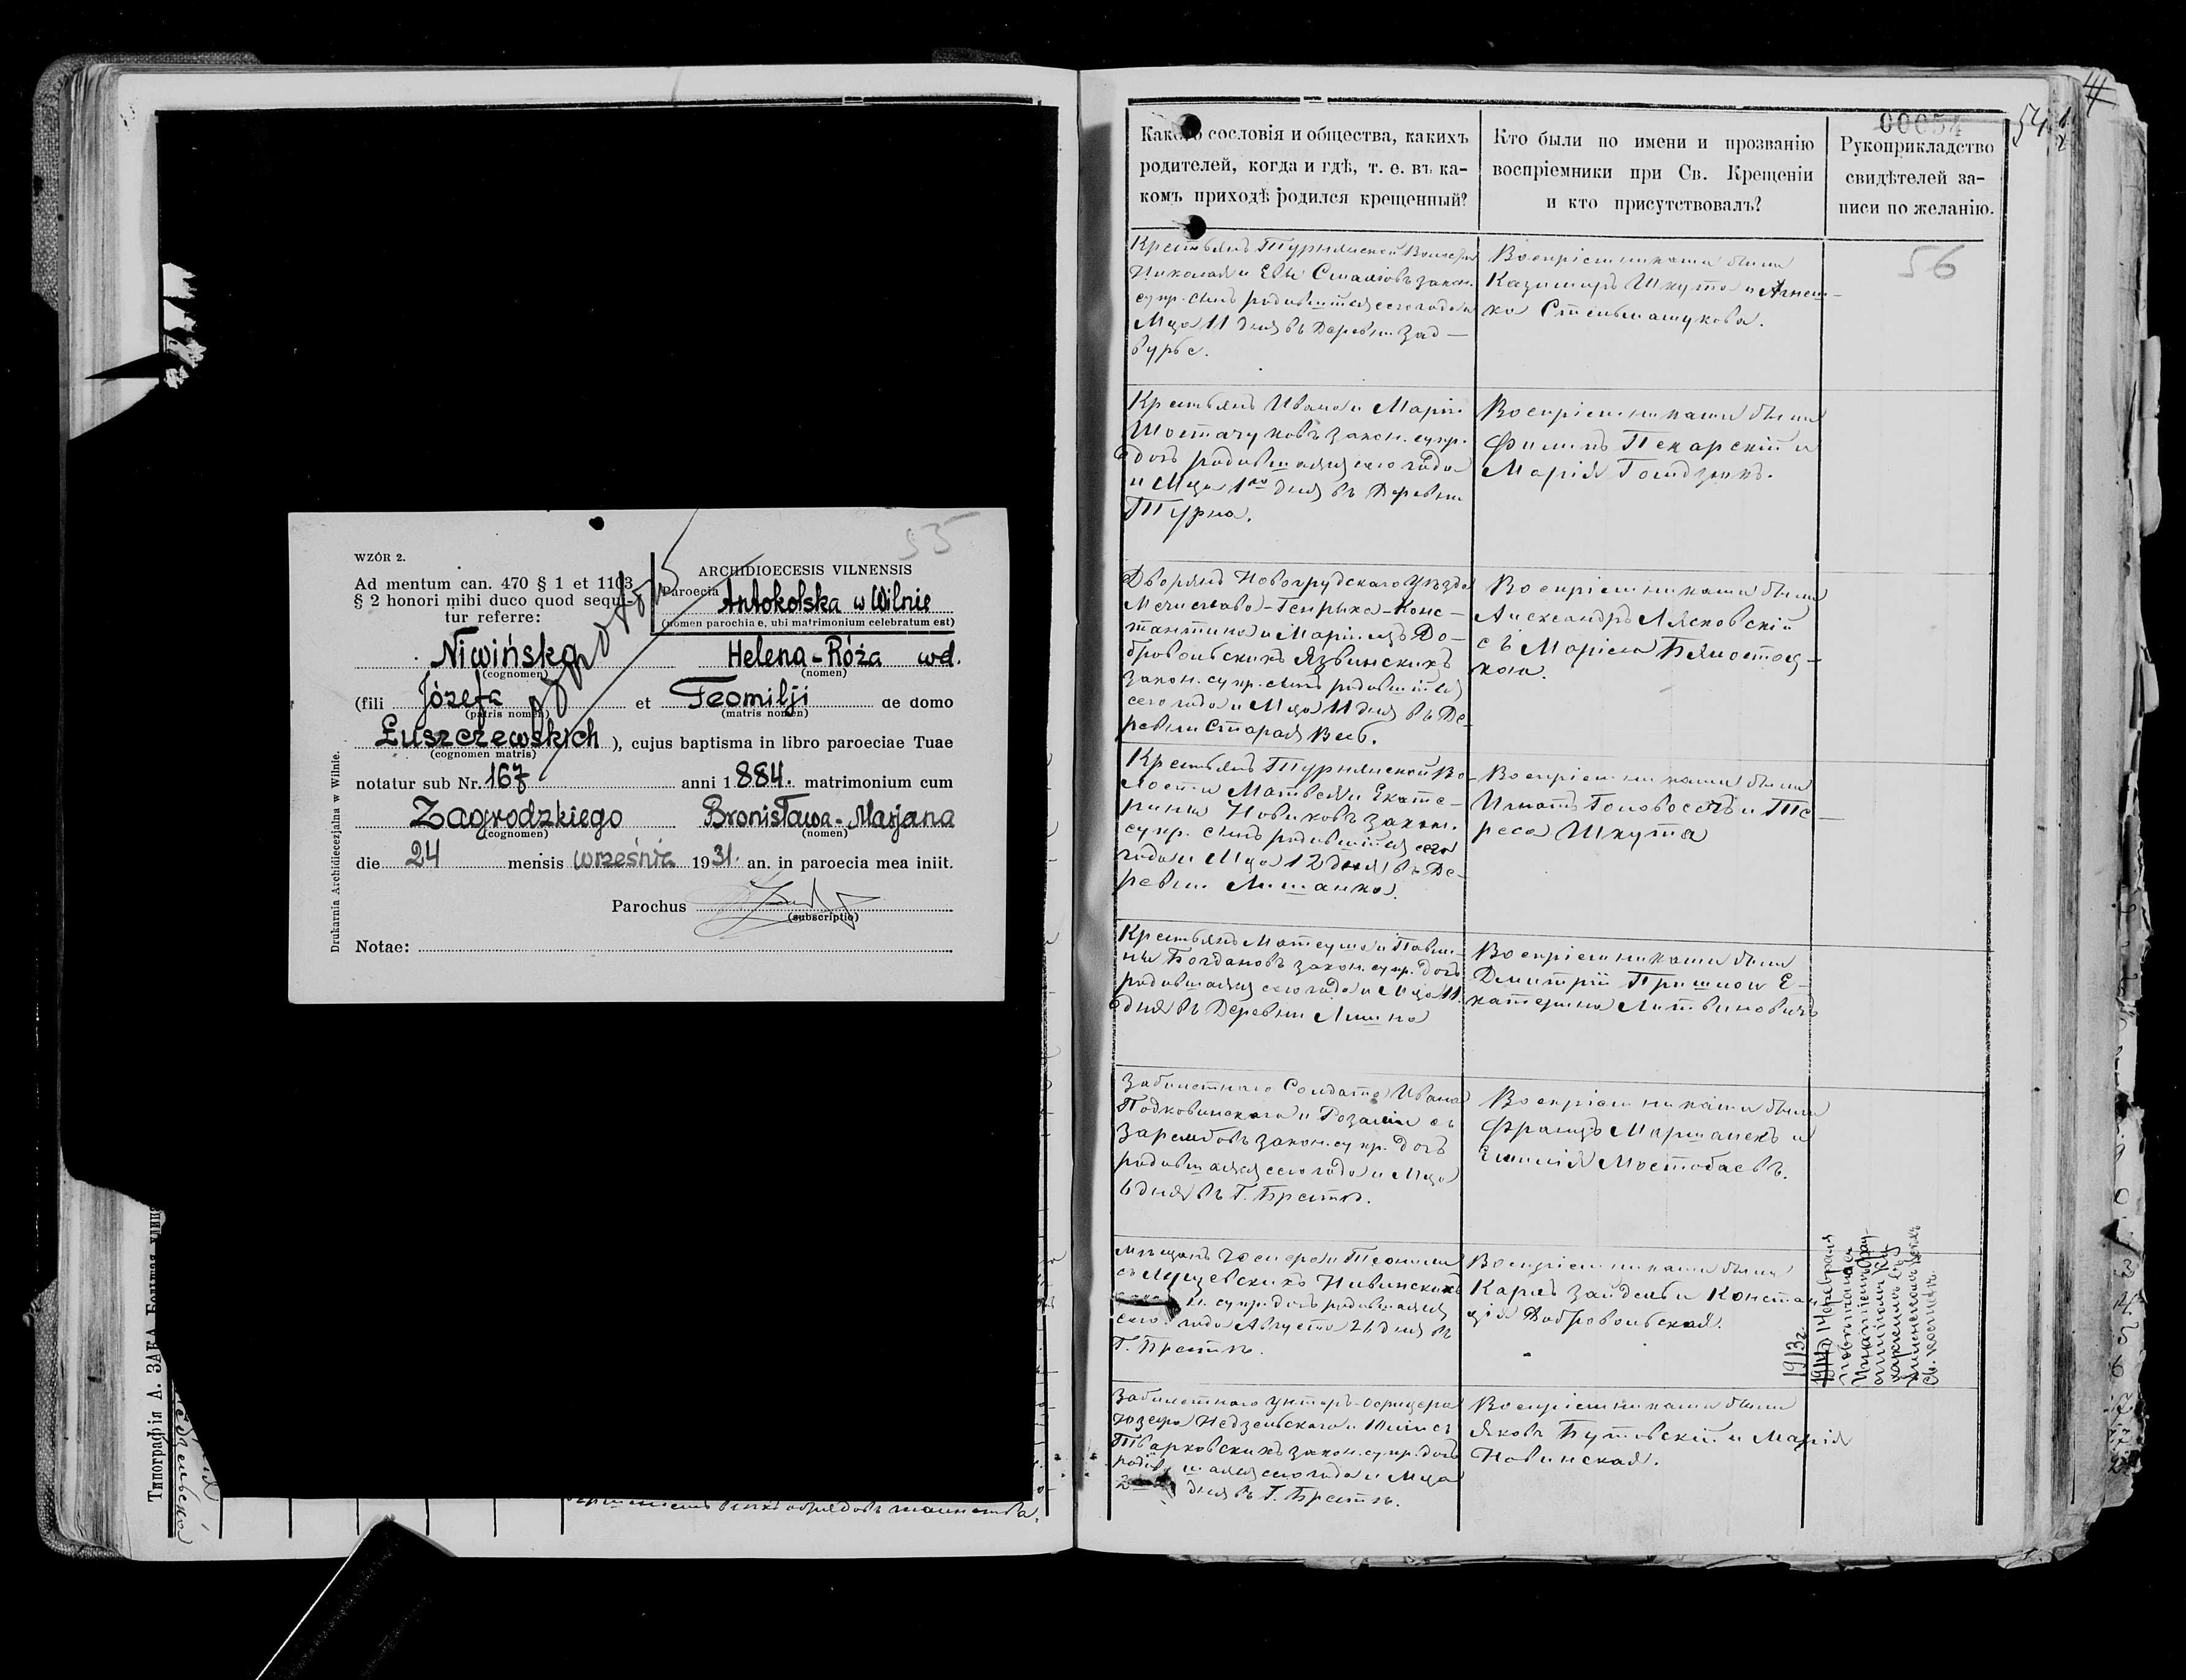 55
WZÓR 2.
Ad mentum can. 470 § 1 et 1103
§ 2 honori mihi duco quod sequi-
tur referre:
ARCHIDIOECESIS VILNENSIS
Paroecia Antokolska w Wilnie
(nomen parochiae, ubi matrimonium celebratum est)
Niwińska Helena-Róża wd.
(cognomen) (nomen)
(fili Józefa et Teomilji de domo
(patris nomen) (matris nomen)
Łuszczewskich ), cujus baptisma in libro paroeciae Tuae
(cognomen matris)
notatur sub Nr. 167 anni 1884. matrimonium cum
Zagrodzkiego Bronisława-Marjana
(cognomen) (nomen)
die 24 mensis września 1931. an. in paroecia mea iniit.
Parochus
(subscriptio)
Notae:
Drukarnia Archidiecezjalna w Wilnie.
Типографія А.
00054
54
Какого сословія и общества, какихъ
родителей, когда и гдѣ, т. е. въ ка-
комъ приходѣ родился крещенный?
Кто были по имени и прозванію
воспріемники при Св. Крещеніи
и кто присутствовалъ?
Рукоприкладство
свидѣтелей за-
писи по желанію.
56
Крестьянъ Турнянской Волости
Николая и Евы закон.
супр. сынъ родившійся сего года и
Мца 11 дня въ Деревни Зад-
вурье.
Воспріемниками были
Казимиръ Шкута и Агнеш-
ка
Крестьянъ Ивана и Маріи
Шостачуковъ закон. супр.
дочь родившаяся сего года
и Мца 1го дня въ Деревни
Турна.
Воспріемниками были
Филипъ Пекарскій и
Марія
Дворянъ Новогрудскаго Уѣзда
Мечислава-Генрыха-Конс-
тантина и Маріи изъ До-
бровольскихъ Язвинскихъ
закон. супр. сынъ родившійся
сего года и Мца 11 дня въ Де-
ревни Старая Весь.
Воспріемниками были
Александръ Лясковскій
съ Маріею Бялостоц-
кою.
Крестьянъ Турнянской Во-
лости Матвея и Екате-
рины Новиковъ закон.
супр. сынъ родившійся сего
года и Мца 12 дня въ Де-
ревни
Воспріемниками были
Игнатъ Головосечъ и Те-
реса Шкута
Крестьянъ Матеуша и Павли-
ны Богдановъ закон. супр. дочь
родившаяся сего года и Мца 11.
дня въ Деревни
Воспріемниками были
Дмитрій и Е-
катерина Литвиновичъ
Забилетнаго Солдата Ивана
Подковинскаго и Розаліи съ
Зарембовъ закон. супр. дочь
родившаяся сего года и Мца
6 дня въ Г. Брестѣ.
Воспріемниками были
Францъ Маршалекъ и
Емилія
Мѣщанъ Юсифа и Теофили
съ Лущевскихъ Нивинскихъ
супр. дочь родившаяся
сего года Августа 26 дня въ
Г. Брестѣ.
Воспріемниками были
Карлъ Зайдель и Констан-
ція Добровольская.
1913 г.
14 февраля
повѣнчалась
Забилетнаго Унтеръ-Офицера
Юзефа Недзельскаго и Юліи съ
Тварковскихъ закон. супр. дочь
родившаяся сего года и Мца
2 дня въ Г. Брестѣ.
Воспріемниками были
Яковъ Бутовскій и Марія
Новинская.